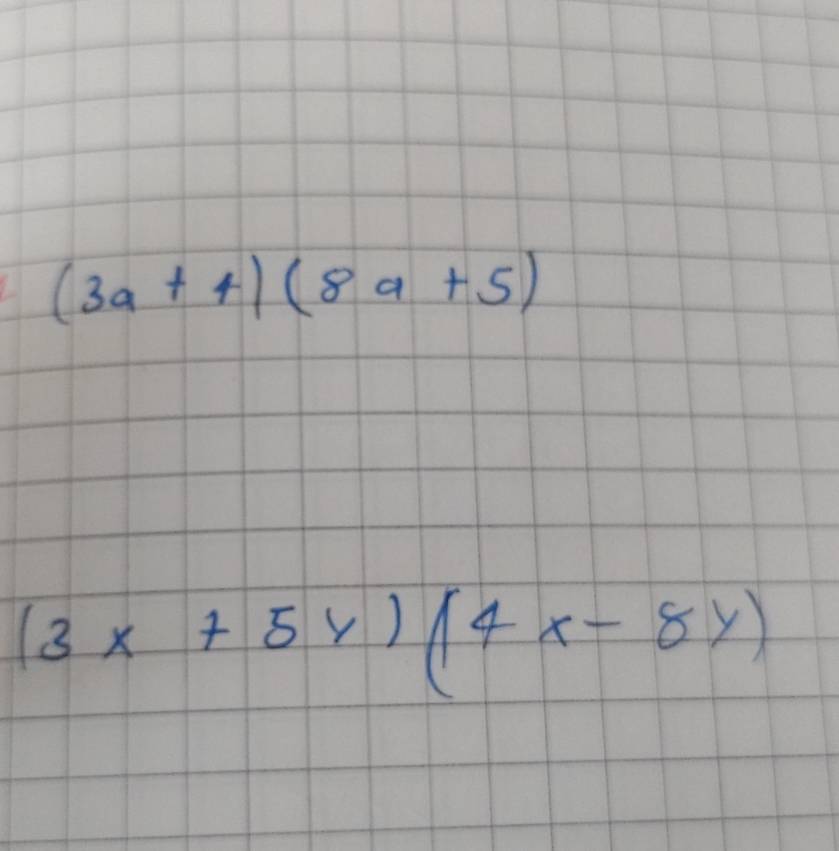 (3a + 4) (8a + 5)
(3x + 5y) (4x - 8y)